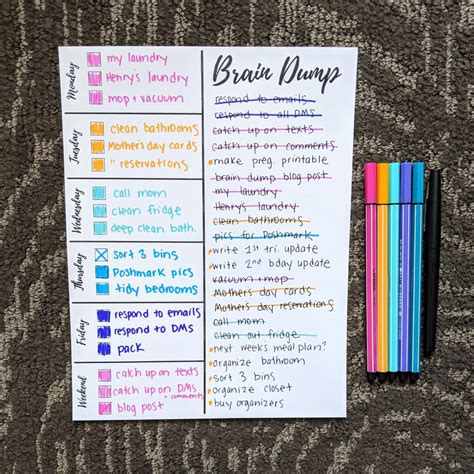 Monday
my laundry
Henrys laundry
mop + vacuum
Tuesday
clean bathrooms
Mother's day cards
" reservations
Wednesday
call mom
clean fridge
deep clean bath.
Thursday
sort 3 bins
Poshmark pics
tidy bedrooms
Friday
respond to emails
respond to DMS
pack
Weekend
catch up on texts
catch up on DMS
+ comments
blog post
Brain Dump
respond to emails
respond to all DMS
catch up on texts
catch up on comments
make preg. printable
brain dump blog post
my laundry
Henrys laundry
clean bathrooms
pics for Poshmark
write 1st tri. update
write 2nd bday update
vacuum + mop
Mothers day cards
Mothers day reservations
call mom
clean out fridge
next weeks meal plan?
organize bathroom
sort 3 bins
organize closet
buy organizers